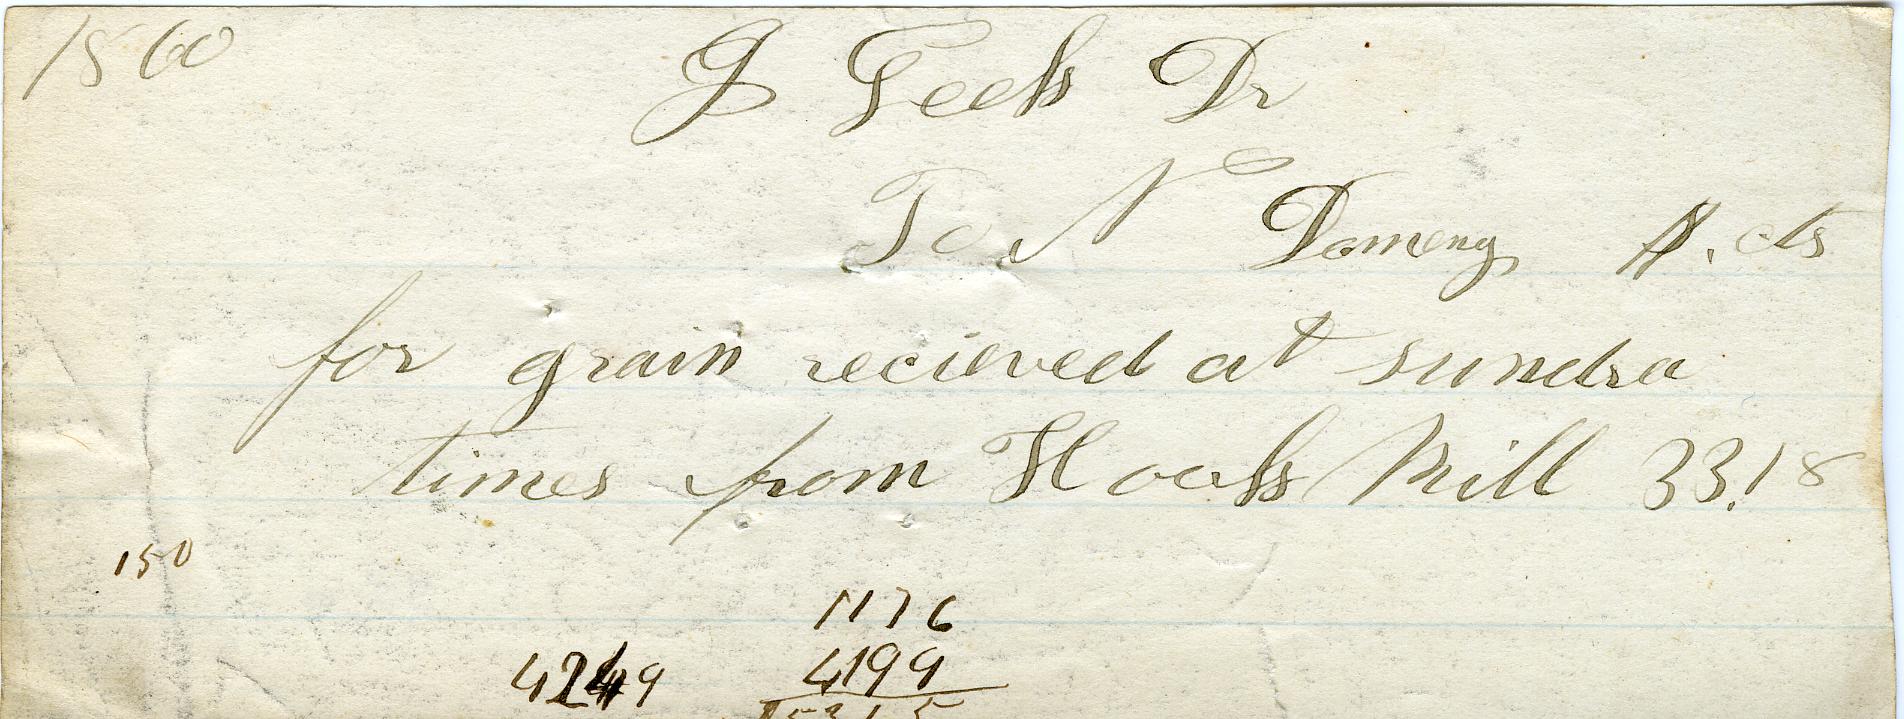 1860
J Geeks Dr
To N Domeny $. cts
for grain recieved at sundra
times from Hocks Mill 33.18
150
1176
4199